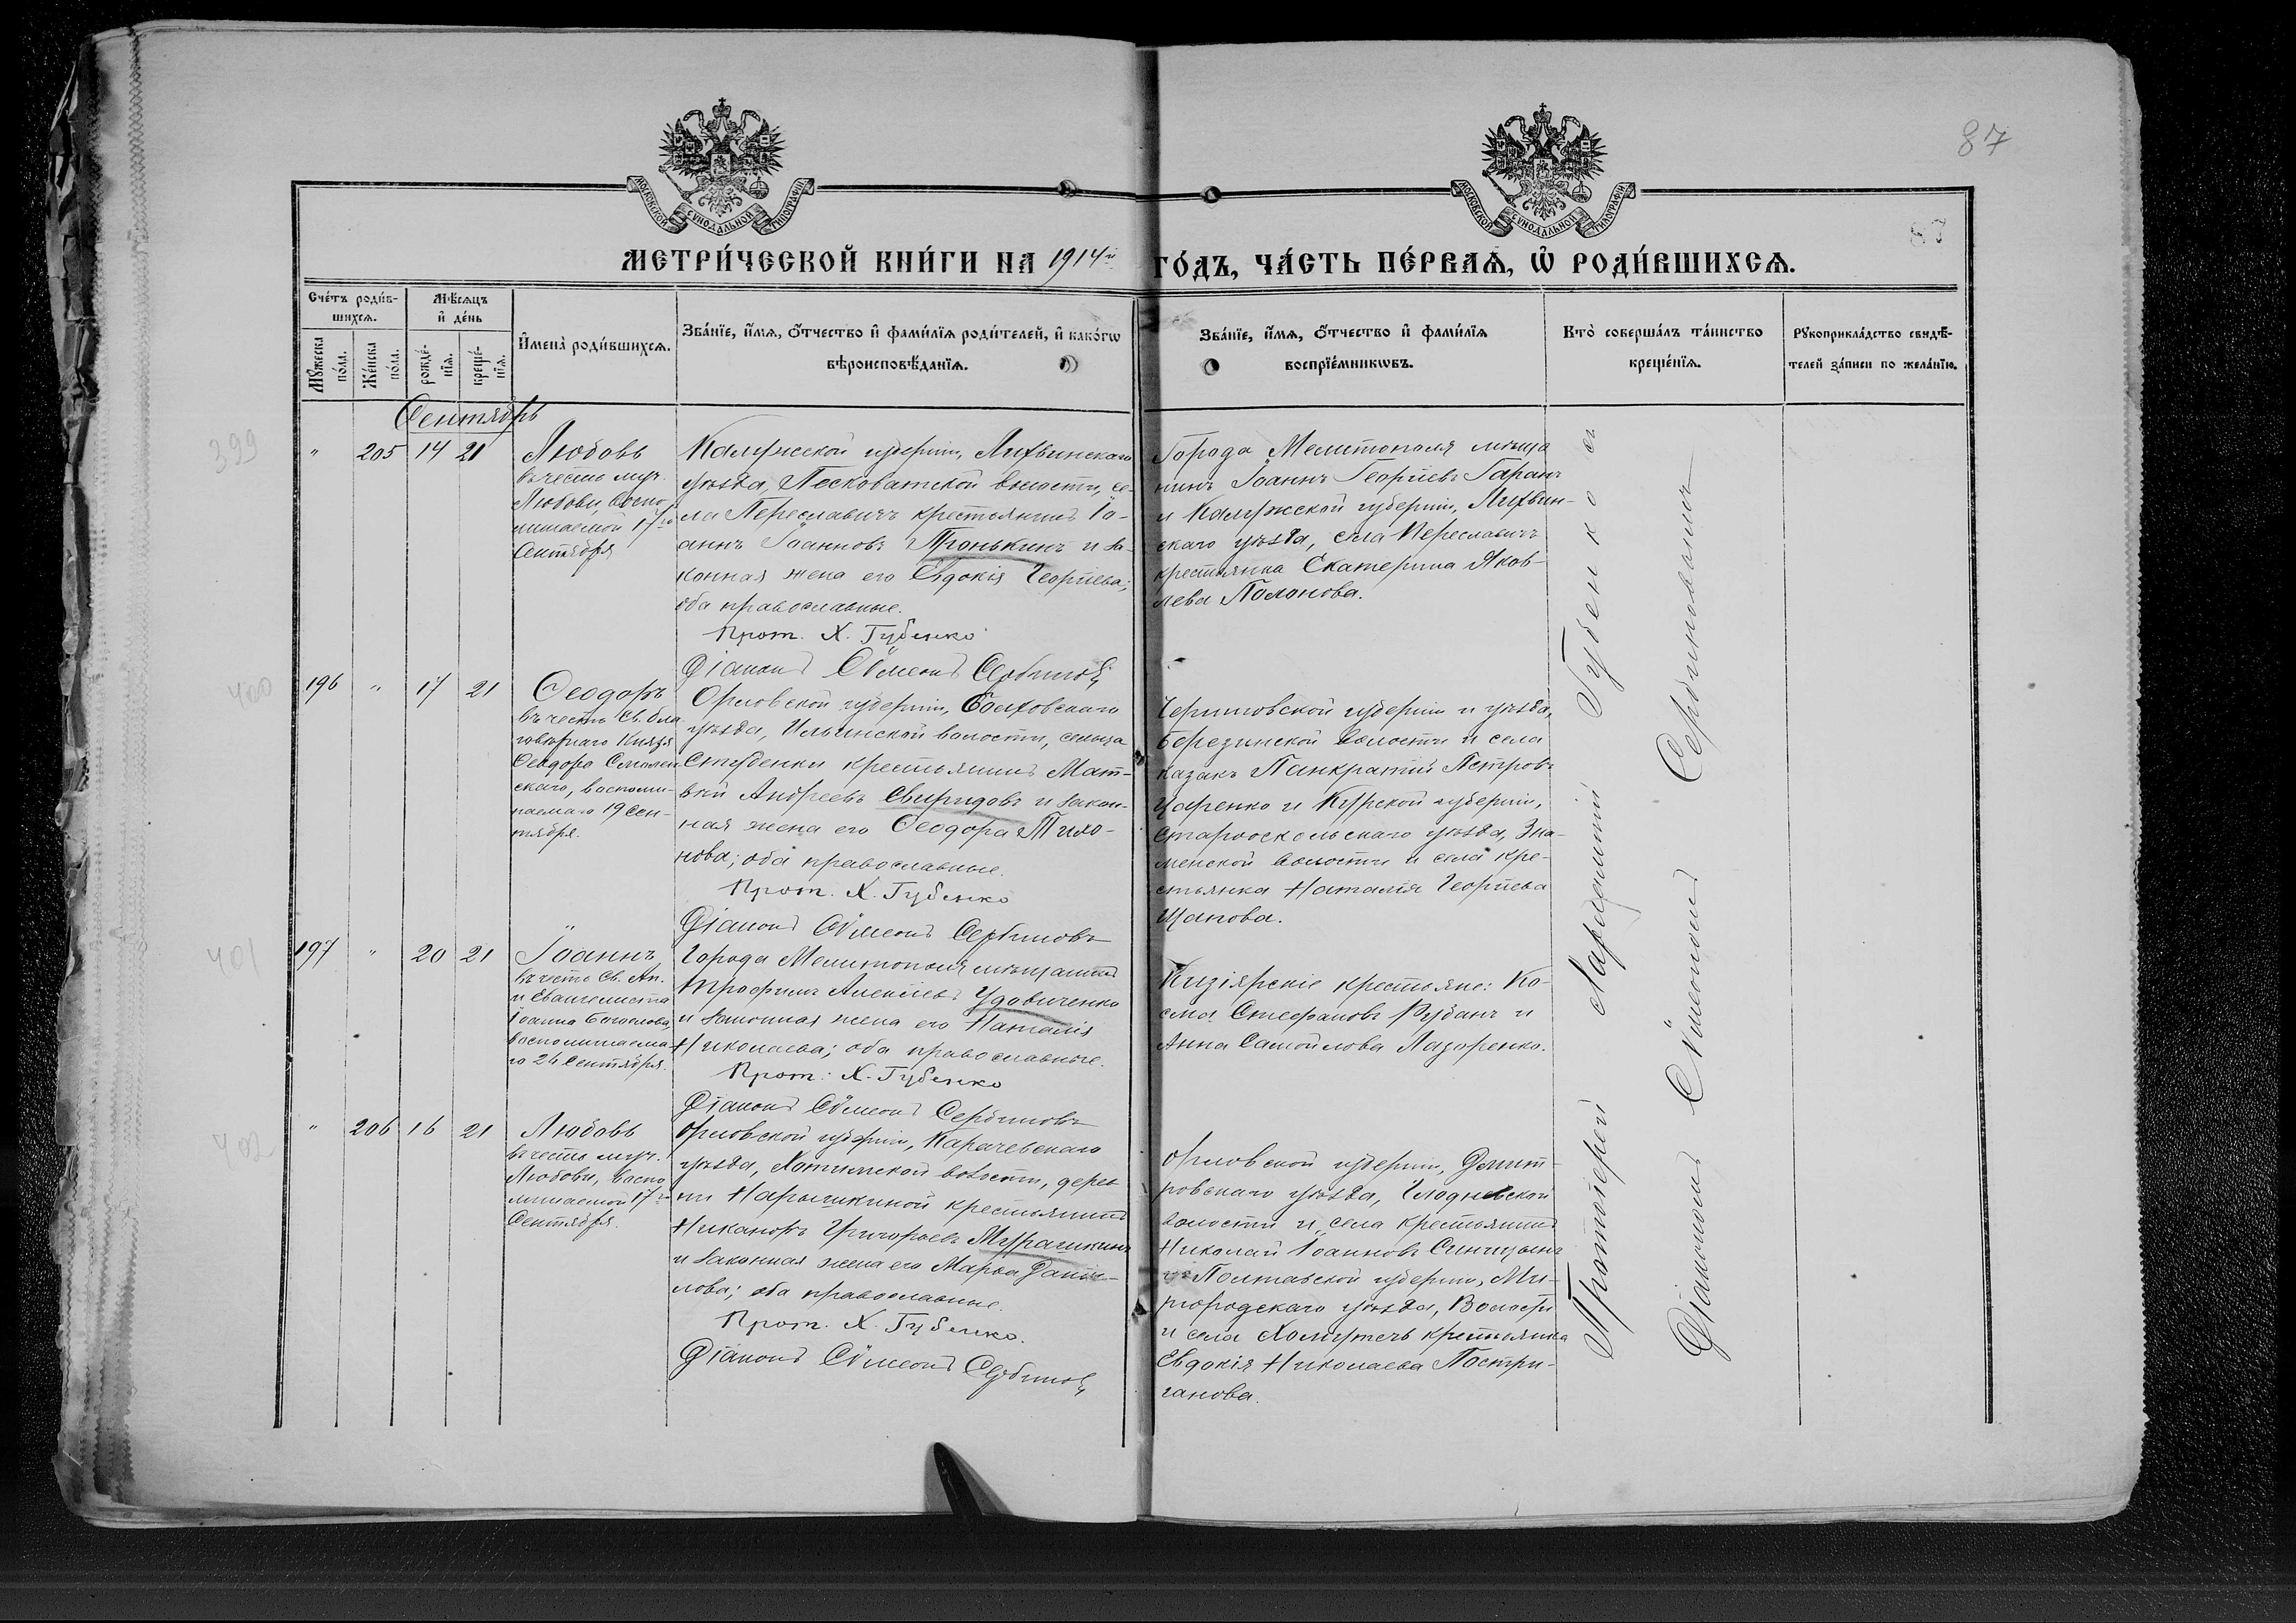 87
87
МОСКОВСКОЙ СѴНОДАЛЬНОЙ ТИПОГРАФІИ
МОСКОВСКОЙ СѴНОДАЛЬНОЙ ТИПОГРАФІИ
МЕТРИ́ЧЕСКОЙ КНИ́ГИ НА 1914й ГО́ДЪ, ЧА́СТЬ ПЕ́РВАѦ, Ѡ҆ РОДИ́ВШИХСѦ.
Сче́тъ роди́в-
шихсѧ.
Мꙋ́жеска по́ла.
Же́нска по́ла.
Мѣ́сѧцъ
и҆ де́нь
рожде́-
нїѧ.
креще́-
нїѧ.
И҆мена̀ роди́вшихсѧ.
Зва́нїе, и҆́мѧ, ѻ҆́тчество и҆ фами́лїѧ роди́телей, и҆ како́гѡ
вѣроисповѣ́данїѧ.
Зва́нїе, и҆́мѧ, ѻ҆́тчество и҆ фами́лїѧ
воспрїе́мникѡвъ.
Кто̀ соверша́лъ та́инство
креще́нїѧ.
Рꙋкоприкла́дство свидѣ́-
телей за́писи по жела́нїю.
Сентябрь
399
" 205 14 21
Любовь
въ честь муч.
Любови, воспо-
минаемой 17го
Сентября
Калужской губерніи, Лихвинскаго
уѣзда, Песковатской волости, се-
ла Переславичъ крестьянинъ Іо-
аннъ Іоанновъ Пронькинъ и за-
конная жена его Евдокія Георгіева;
оба православные.
Прот. Х. Губенко
Діаконъ Сѵмеонъ Сербиновъ
Города Мелитополя мѣща
нинъ Іоаннъ Георгіевъ Гаранъ
и Калужской губерніи, Лихвин-
скаго уѣзда, села Переславичъ
крестьянка Екатерина Яков-
лева Полонова.
400
196 " 17 21
Ѳеодоръ
въ честь Св. бла
говѣрнаго Князя
Ѳеодора Смолен
скаго, воспоми-
наемаго 19 Сен-
тября.
Орловской губерніи, Болховскаго
уѣзда, Ильинской волости, сельца
Студенки крестьянинъ Мат-
вѣй Андреевъ Свиридовъ и закон-
ная жена его Ѳеодора Тихо-
нова; оба православные.
Прот. Х. Губенко
Діаконъ Сѵмеонъ Сербиновъ
Черниговской губерніи и уѣзда,
Березинской волости и села
казакъ Панкратій Петровъ
Царенко и Курской губерніи,
Старооскольскаго уѣзда, Зна-
менской волости и села кре-
стьянка Наталія Георгіева
Цанова.
401
197 " 20 21
Іоаннъ
въ честь Св. Ап.
и Евангелиста
Іоанна Богослова,
воспоминаема-
го 26 Сентября.
Города Мелитополя мѣщанинъ
Трофимъ Алексіевъ Удовиченко
и законная жена его Наталія
Николаева; оба православные.
Прот: Х. Губенко
Діаконъ Сѵмеонъ Сербиновъ
Кизіярскіе крестьяне: Ко-
сма Стефановъ Рубанъ и
Анна Самойлова Лазоренко.
402
" 206 16 21
Любовь
въ честь муч.
Любови, воспо
минаемой 17го
Сентября.
Орловской губерніи, Карачевскаго
уѣзда, Хотимской волости, дерев
ни Нарышкиной крестьянинъ
Никаноръ Григорьевъ Мурашкинъ
и законная жена его Марѳа Дани-
лова; оба православные.
Прот. Х. Губенко.
Діаконъ Сѵмеонъ Сербиновъ
Орловской губерніи, Дмит-
ровскаго уѣзда, Глодневской
волости и села крестьянинъ
Николай Іоанновъ Синицынъ
и Полтавской губерніи, Ми-
ргородскаго уѣзда, Волости
и села Хомутецъ крестьянка
Евдокія Николаева Постри-
ганова.
Протоіерей Харлампій Губенко съ
Діакономъ Сѵмеономъ Сербиновымъ